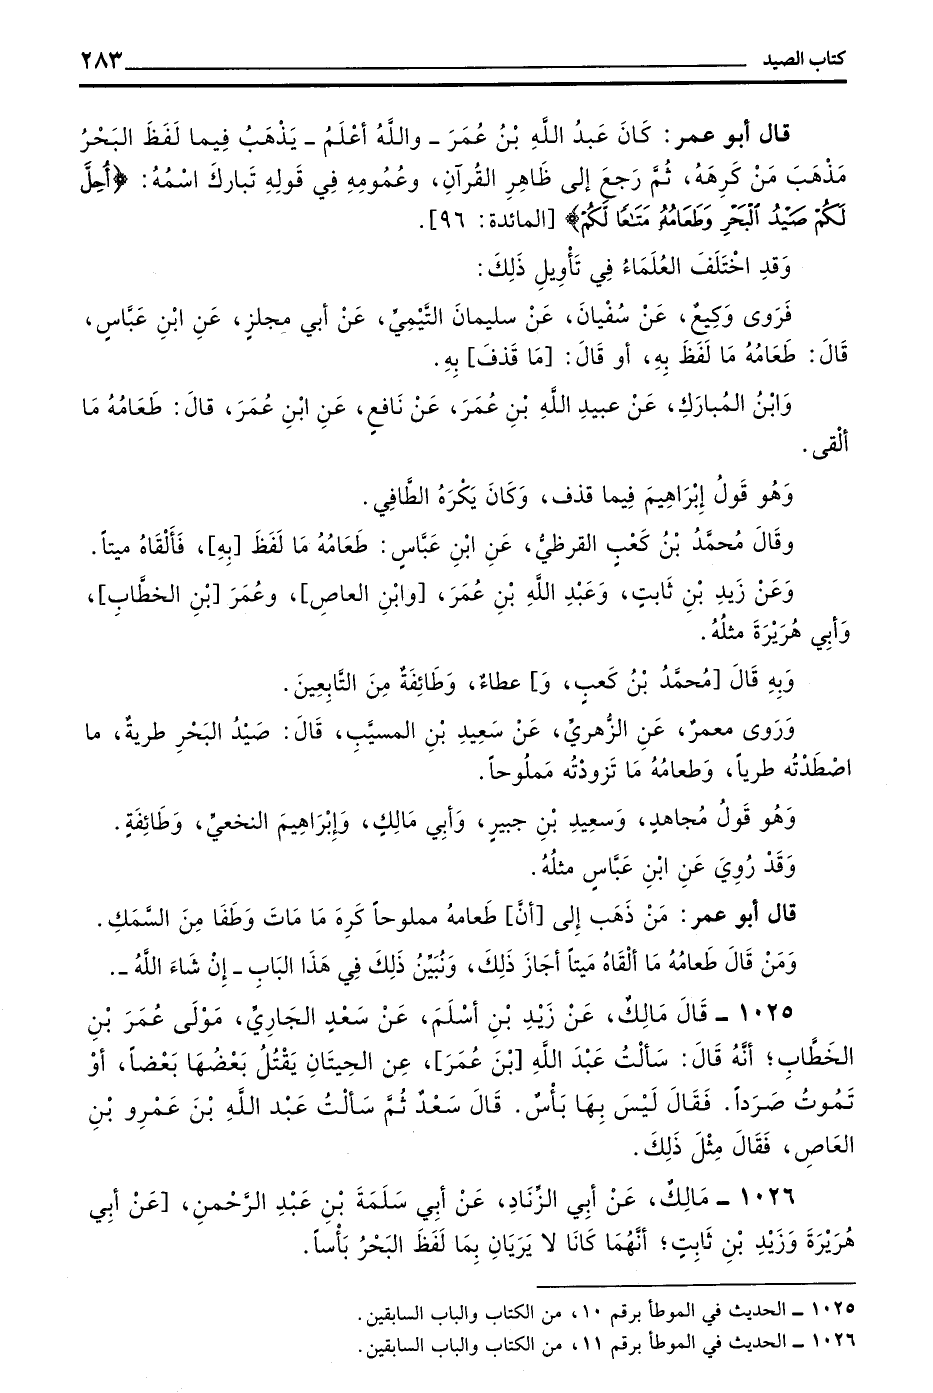 كتاب الصيد ٢٨٣
قال أبو عمر: كَانَ عَبدُ اللَّهِ بْنُ عُمَرَ ـ واللَّهُ أعْلَمُ ـ يَذْهَبُ فِيما لَفَظَ البَحْرُ
مَذْهَبَ مَنْ كَرِهَهُ، ثُمَّ رَجعَ إلى ظَاهِرِ القُرآنِ، وعُمُومِهِ فِي قولِهِ تَباركَ اسْمُهُ: ﴿أُحِلَّ
لَكُمْ صَيْدُ ٱلْبَحْرِ وَطَعَامُهُ مَتَـٰعًا لَكُمْ﴾ [المائدة: ٩٦].
وَقدِ اخْتَلَفَ العُلَمَاءُ فِي تَأْوِيلِ ذَلِكَ:
فَرَوى وَكِيعٌ، عَنْ سُفْيَانَ، عَنْ سليمانَ التَّيْمِيِّ، عَنْ أبي مجلزٍ، عَنِ ابْنِ عَبَّاسٍ،
قَالَ: طَعَامُهُ مَا لَفَظَ بِهِ، أو قَالَ: [مَا قَذفَ] بِهِ.
وَابْنُ المُبارَكِ، عَنْ عبيدِ اللَّهِ بْنِ عُمَرَ، عَنْ نَافعٍ، عَنِ ابْنِ عُمَرَ، قالَ: طَعَامُهُ مَا
ألْقى.
وَهُو قَولُ إبْرَاهِيمَ فِيما قذف، وَكَانَ يَكْرَهُ الطَّافِي.
وقَالَ مُحمَّدُ بْنُ كَعْبٍ القرظيُّ، عَنِ ابْنِ عَبَّاسٍ: طَعَامُهُ مَا لَفَظَ [بِهِ]، فَأَلْقَاهُ ميتاً.
وَعَنْ زَيدِ بْنِ ثَابتٍ، وَعَبْدِ اللَّهِ بْنِ عُمَرَ، [وابْنِ العاصِ]، وعُمَرَ [بْنِ الخطَّابِ]،
وَأبِي هُرَيْرَةَ مثلُهُ.
وَبِهِ قَالَ [مُحمَّدُ بْنُ كَعبٍ، وَ] عطاءٌ، وَطَائِفَةٌ مِنَ التَّابِعِينَ.
وَرَوى معمرٌ، عَنِ الزُّهريِّ، عَنْ سَعِيدِ بْنِ المسيَّبِ، قَالَ: صَيْدُ البَحْرِ طريةٌ، ما
اصْطَدْتُه طرياً، وَطعامُهُ مَا تَزودْتُه مَملُوحاً.
وَهُو قَولُ مُجاهدٍ، وَسعِيدِ بْنِ جبيرٍ، وَأبي مَالِكٍ، وَإبْرَاهِيمَ النخعيِّ، وَطَائِفَةٍ.
وَقَدْ رُوِيَ عَنِ ابْنِ عَبَّاسٍ مثلُهُ.
قال أبو عمر: مَنْ ذَهَب إلى [أنَّ] طَعامهُ مملوحاً كَرِهَ مَا مَاتَ وَطَفَا مِنَ السَّمَكِ.
وَمَنْ قَالَ طَعامُهُ مَا ألْقَاهُ مَيتاً أجَازَ ذَلِكَ، وَنُبَيِّنُ ذَلِكَ فِي هَذَا البَابِ ـ إنْ شَاءَ اللَّهُ ـ.
١٠٢٥ ـ قَالَ مَالِكٌ، عَنْ زَيْدِ بْنِ أسْلَمَ، عَنْ سَعْدٍ الجَارِيِّ، مَوْلَى عُمَرَ بْنِ
الخَطَّابِ؛ أنَّهُ قَالَ: سَألْتُ عَبْدَ اللَّهِ [بْنَ عُمَرَ]، عَنِ الحِيتَانِ يَقْتُلُ بَعْضُهَا بَعْضاً، أوْ
تَمُوتُ صَرَداً. فَقَالَ لَيْسَ بِهَا بَأْسٌ. قَالَ سَعْدٌ ثُمَّ سَألْتُ عَبْد اللَّهِ بْنَ عَمْرِو بْنِ
العَاصِ، فَقَالَ مِثْلَ ذَلِكَ.
١٠٢٦ ـ مَالِكٌ، عَنْ أبِي الزِّنَادِ، عَنْ أبِي سَلَمَةَ بْنِ عَبْدِ الرَّحْمنِ، [عَنْ أبِي
هُرَيْرَةَ وَزَيْدِ بْنِ ثَابِتٍ؛ أنَّهُمَا كَانَا لا يَرَيَانِ بِمَا لَفَظَ البَحْرُ بَأْساً.
١٠٢٥ ـ الحديث في الموطأ برقم ١٠، من الكتاب والباب السابقين.
١٠٢٦ ـ الحديث في الموطأ برقم ١١، من الكتاب والباب السابقين.